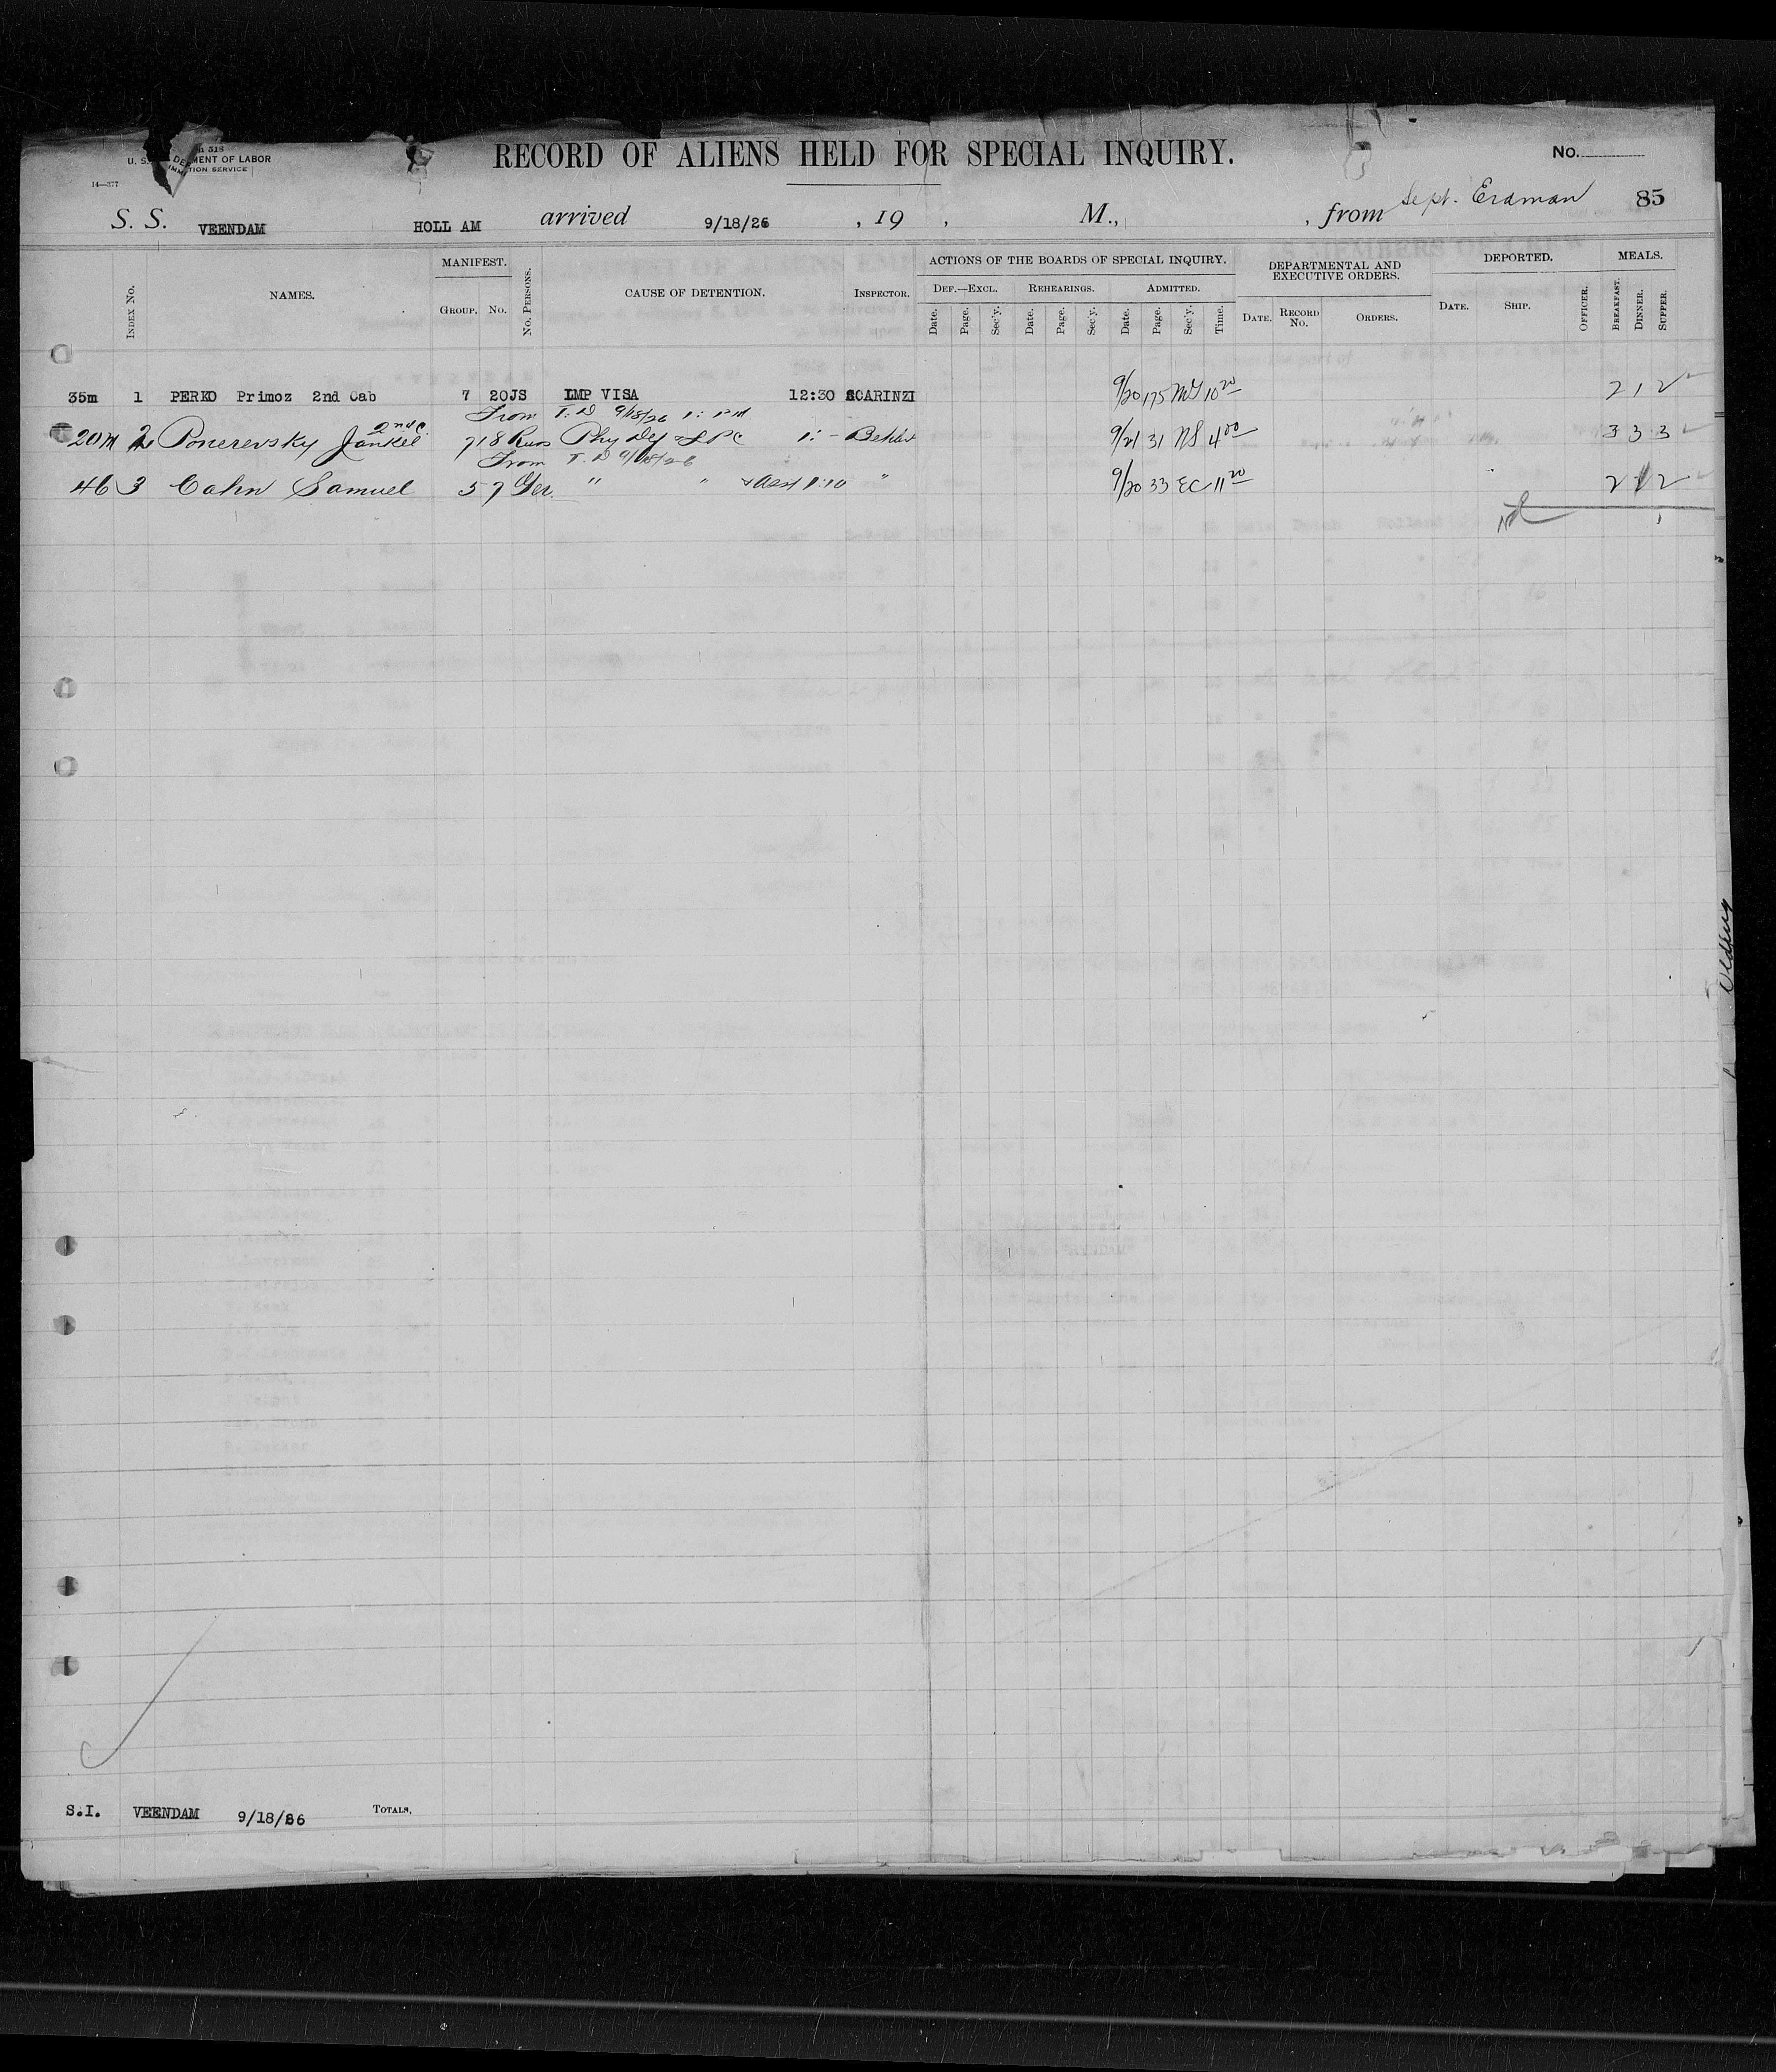 518
U. S. DEPARTMENT OF LABOR
IMMIGRATION SERVICE
14—377
RECORD OF ALIENS HELD FOR SPECIAL INQUIRY.
No.
S. S. VEENDAM HOLL AM arrived 9/18/26 , 19 , M., , from Sept. Erdman 85
INDEX No.
NAMES.
MANIFEST.
GROUP. No.
No. PERSONS.
CAUSE OF DETENTION.
INSPECTOR.
ACTIONS OF THE BOARDS OF SPECIAL INQUIRY.
DEF.—EXCL. REHEARINGS. ADMITTED.
Date. Page. Sec'y. Date. Page. Sec'y. Date. Page. Sec'y. Time.
DEPARTMENTAL AND EXECUTIVE ORDERS.
DATE. RECORD No. ORDERS.
DEPORTED.
DATE. SHIP. OFFICER.
MEALS.
BREAKFAST. DINNER. SUPPER.
35m 1 PERKO Primoz 2nd Cab 7 20JS IMP VISA 12:30 SCARINZI 9/20 175 10 20 2 1 2
From T. D 9/18/26
2nd C.
20m 2 Ponerevsky Jankel 7 18 Russ Phy Def & LPC 1:- 9/21 31 NS 4 00 3 3 3
From T. D 9/18/26
46 3 Cahn Samuel 5 7 Ger. " " 1:10 " 9/20 33 EC 11 20 2 1 2
S.I. VEENDAM 9/18/26 TOTALS,